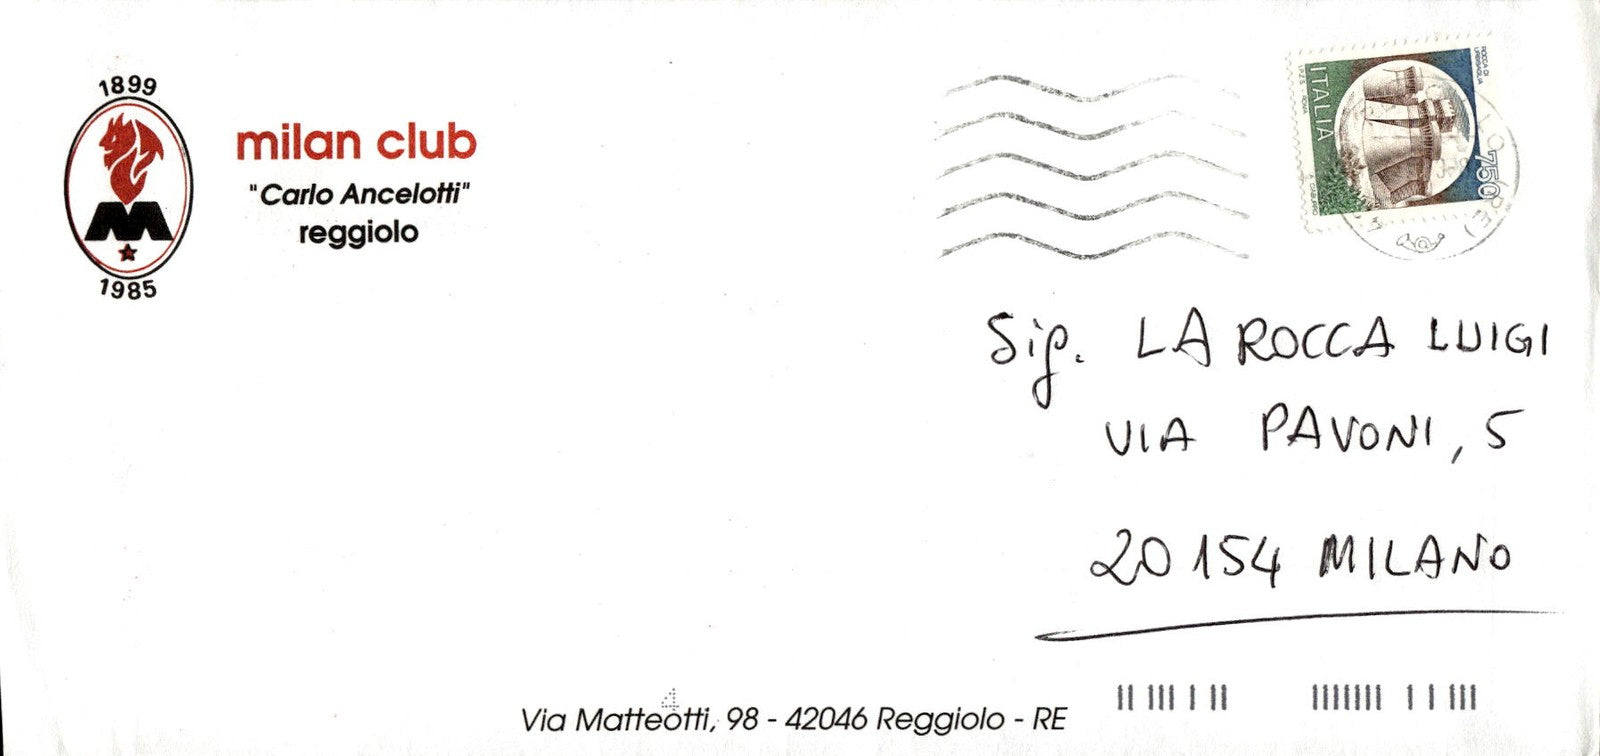 1899
milan club
"Carlo Ancelotti"
reggiolo
M
1985
ITALIA
750
ROCCA DI
URBISAGLIA
I.P.Z.S. ROMA
Sig. LA ROCCA LUIGI
VIA PAVONI, 5
20154 MILANO
4
Via Matteotti, 98 - 42046 Reggiolo - RE